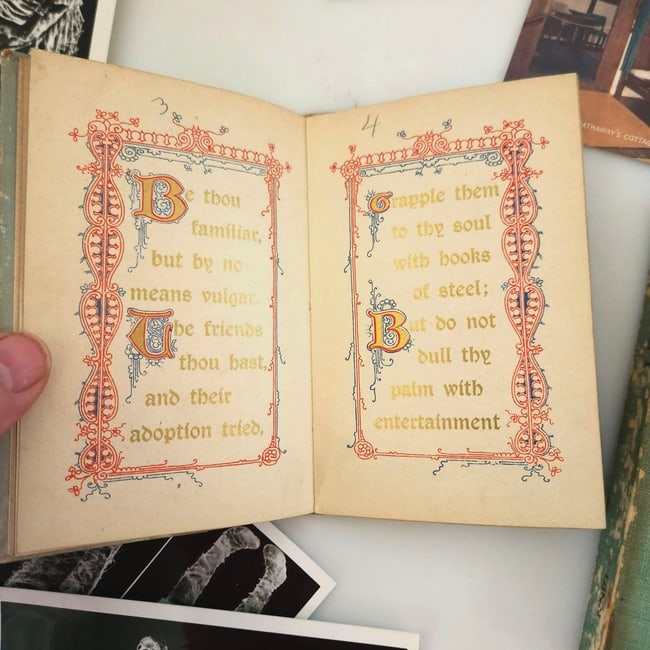 3
Be thou
familiar,
but by no
means vulgar.
The friends
thou hast,
and their
adoption tried,
4
Grapple them
to thy soul
with hooks
of steel;
But do not
dull thy
palm with
entertainment
HATHAWAY'S COTTA